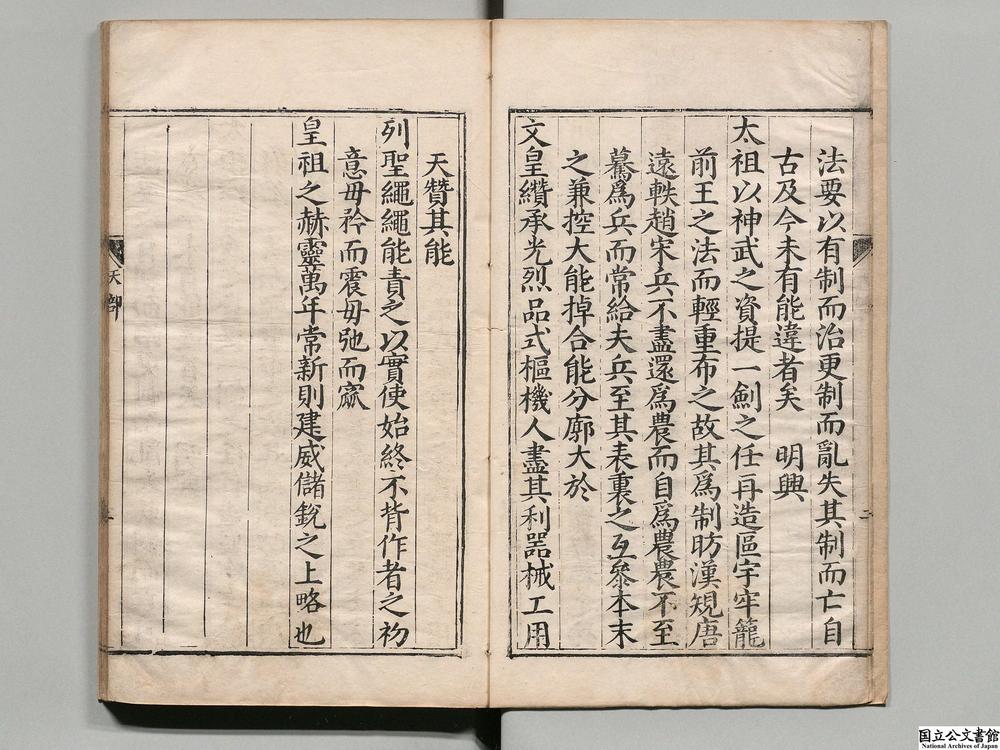 法要以有制而治更制而亂失其制而亡自
古及今未有能違者矣　明興
太祖以神武之資提一劍之任再造區宇牢籠
前王之法而輕重布之故其爲制昉漢規唐
遠軼趙宋兵不盡還爲農而自爲農農不至
驀爲兵而常給夫兵至其表裏之互參本末
之兼控大能掉合能分廓大於
文皇纘承光烈品式樞機人盡其利器械工用
天贊其能
列聖繩繩能責之以實使始終不背作者之初
意毋矜而震毋弛而窳
皇祖之赫靈萬年常新則建威儲銳之上略也
天部
国立公文書館
National Archives of Japan